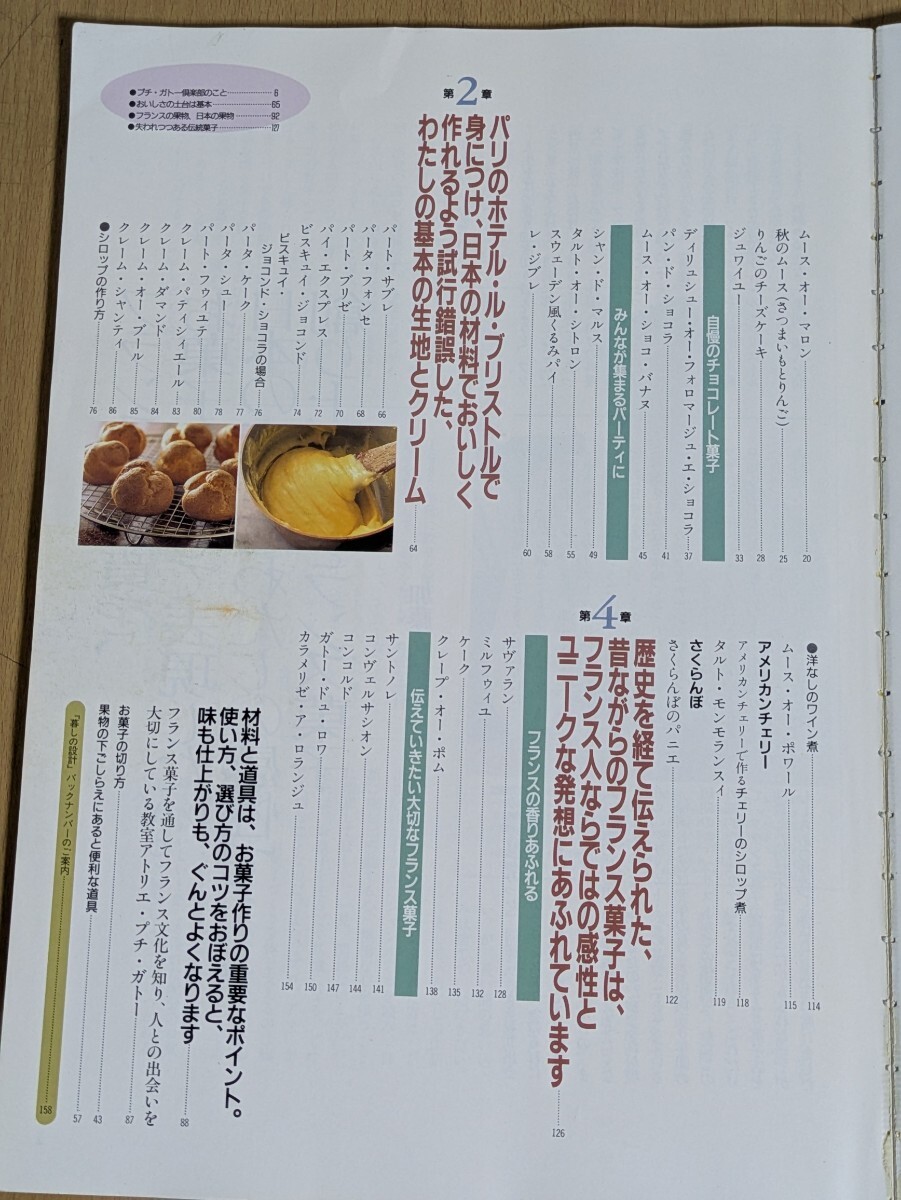 ●プチ・ガトー倶楽部のこと…………6
●おいしさの土台は基本…………65
●フランスの果物、日本の果物…………92
●失われつつある伝統菓子…………127
ムース・オー・マロン…………20
秋のムース(さつまいもとりんご)…………25
りんごのチーズケーキ…………28
ジュワイユー…………33
自慢のチョコレート菓子
ディリュシュー・オー・フォロマージュ・エ・ショコラ…37
パン・ド・ショコラ…………41
ムース・オー・ショコ・バナヌ…………45
みんなが集まるパーティに
シャン・ド・マルス…………49
タルト・オー・シトロン…………55
スウェーデン風くるみパイ…………58
レ・ジブレ…………60
第2章
パリのホテル・ル・ブリストルで
身につけ、日本の材料でおいしく
作れるよう試行錯誤した、
わたしの基本の生地とクリーム…………64
パート・サブレ…………66
パータ・フォンセ…………68
パート・ブリゼ…………70
パイ・エクスプレス…………72
ビスキュイ・ジョコンド…………74
ビスキュイ・
ジョコンド・ショコラの場合…………76
パータ・ケーク…………77
パータ・シュー…………78
パート・フゥイユテ…………80
クレーム・パティシィエール…………83
クレーム・ダマンド…………84
クレーム・オー・ブール…………85
クレーム・シャンティ…………86
●シロップの作り方…………76
●洋なしのワイン煮…………114
ムース・オー・ポワール…………115
アメリカンチェリー
アメリカンチェリーで作るチェリーのシロップ煮…………118
タルト・モンモランスィ…………119
さくらんぼ
さくらんぼのパニエ…………122
第4章
歴史を経て伝えられた、
昔ながらのフランス菓子は、
フランス人ならではの感性と
ユニークな発想にあふれています…………126
フランスの香りあふれる
サヴァラン…………128
ミルフゥイユ…………132
ケーク…………135
クレープ・オー・ポム…………138
伝えていきたい大切なフランス菓子
サントノレ…………141
コンヴェルサシオン…………144
コンコルド…………147
ガトー・ドュ・ロワ…………150
カラメリゼ・ア・ロランジュ…………154
材料と道具は、お菓子作りの重要なポイント。
使い方、選び方のコツをおぼえると、
味も仕上がりも、ぐんとよくなります…………88
フランス菓子を通してフランス文化を知り、人との出会いを
大切にしている教室アトリエ・プチ・ガトー…………87
お菓子の切り方…………43
果物の下ごしらえにあると便利な道具…………57
「暮しの設計」バックナンバーのご案内…………158